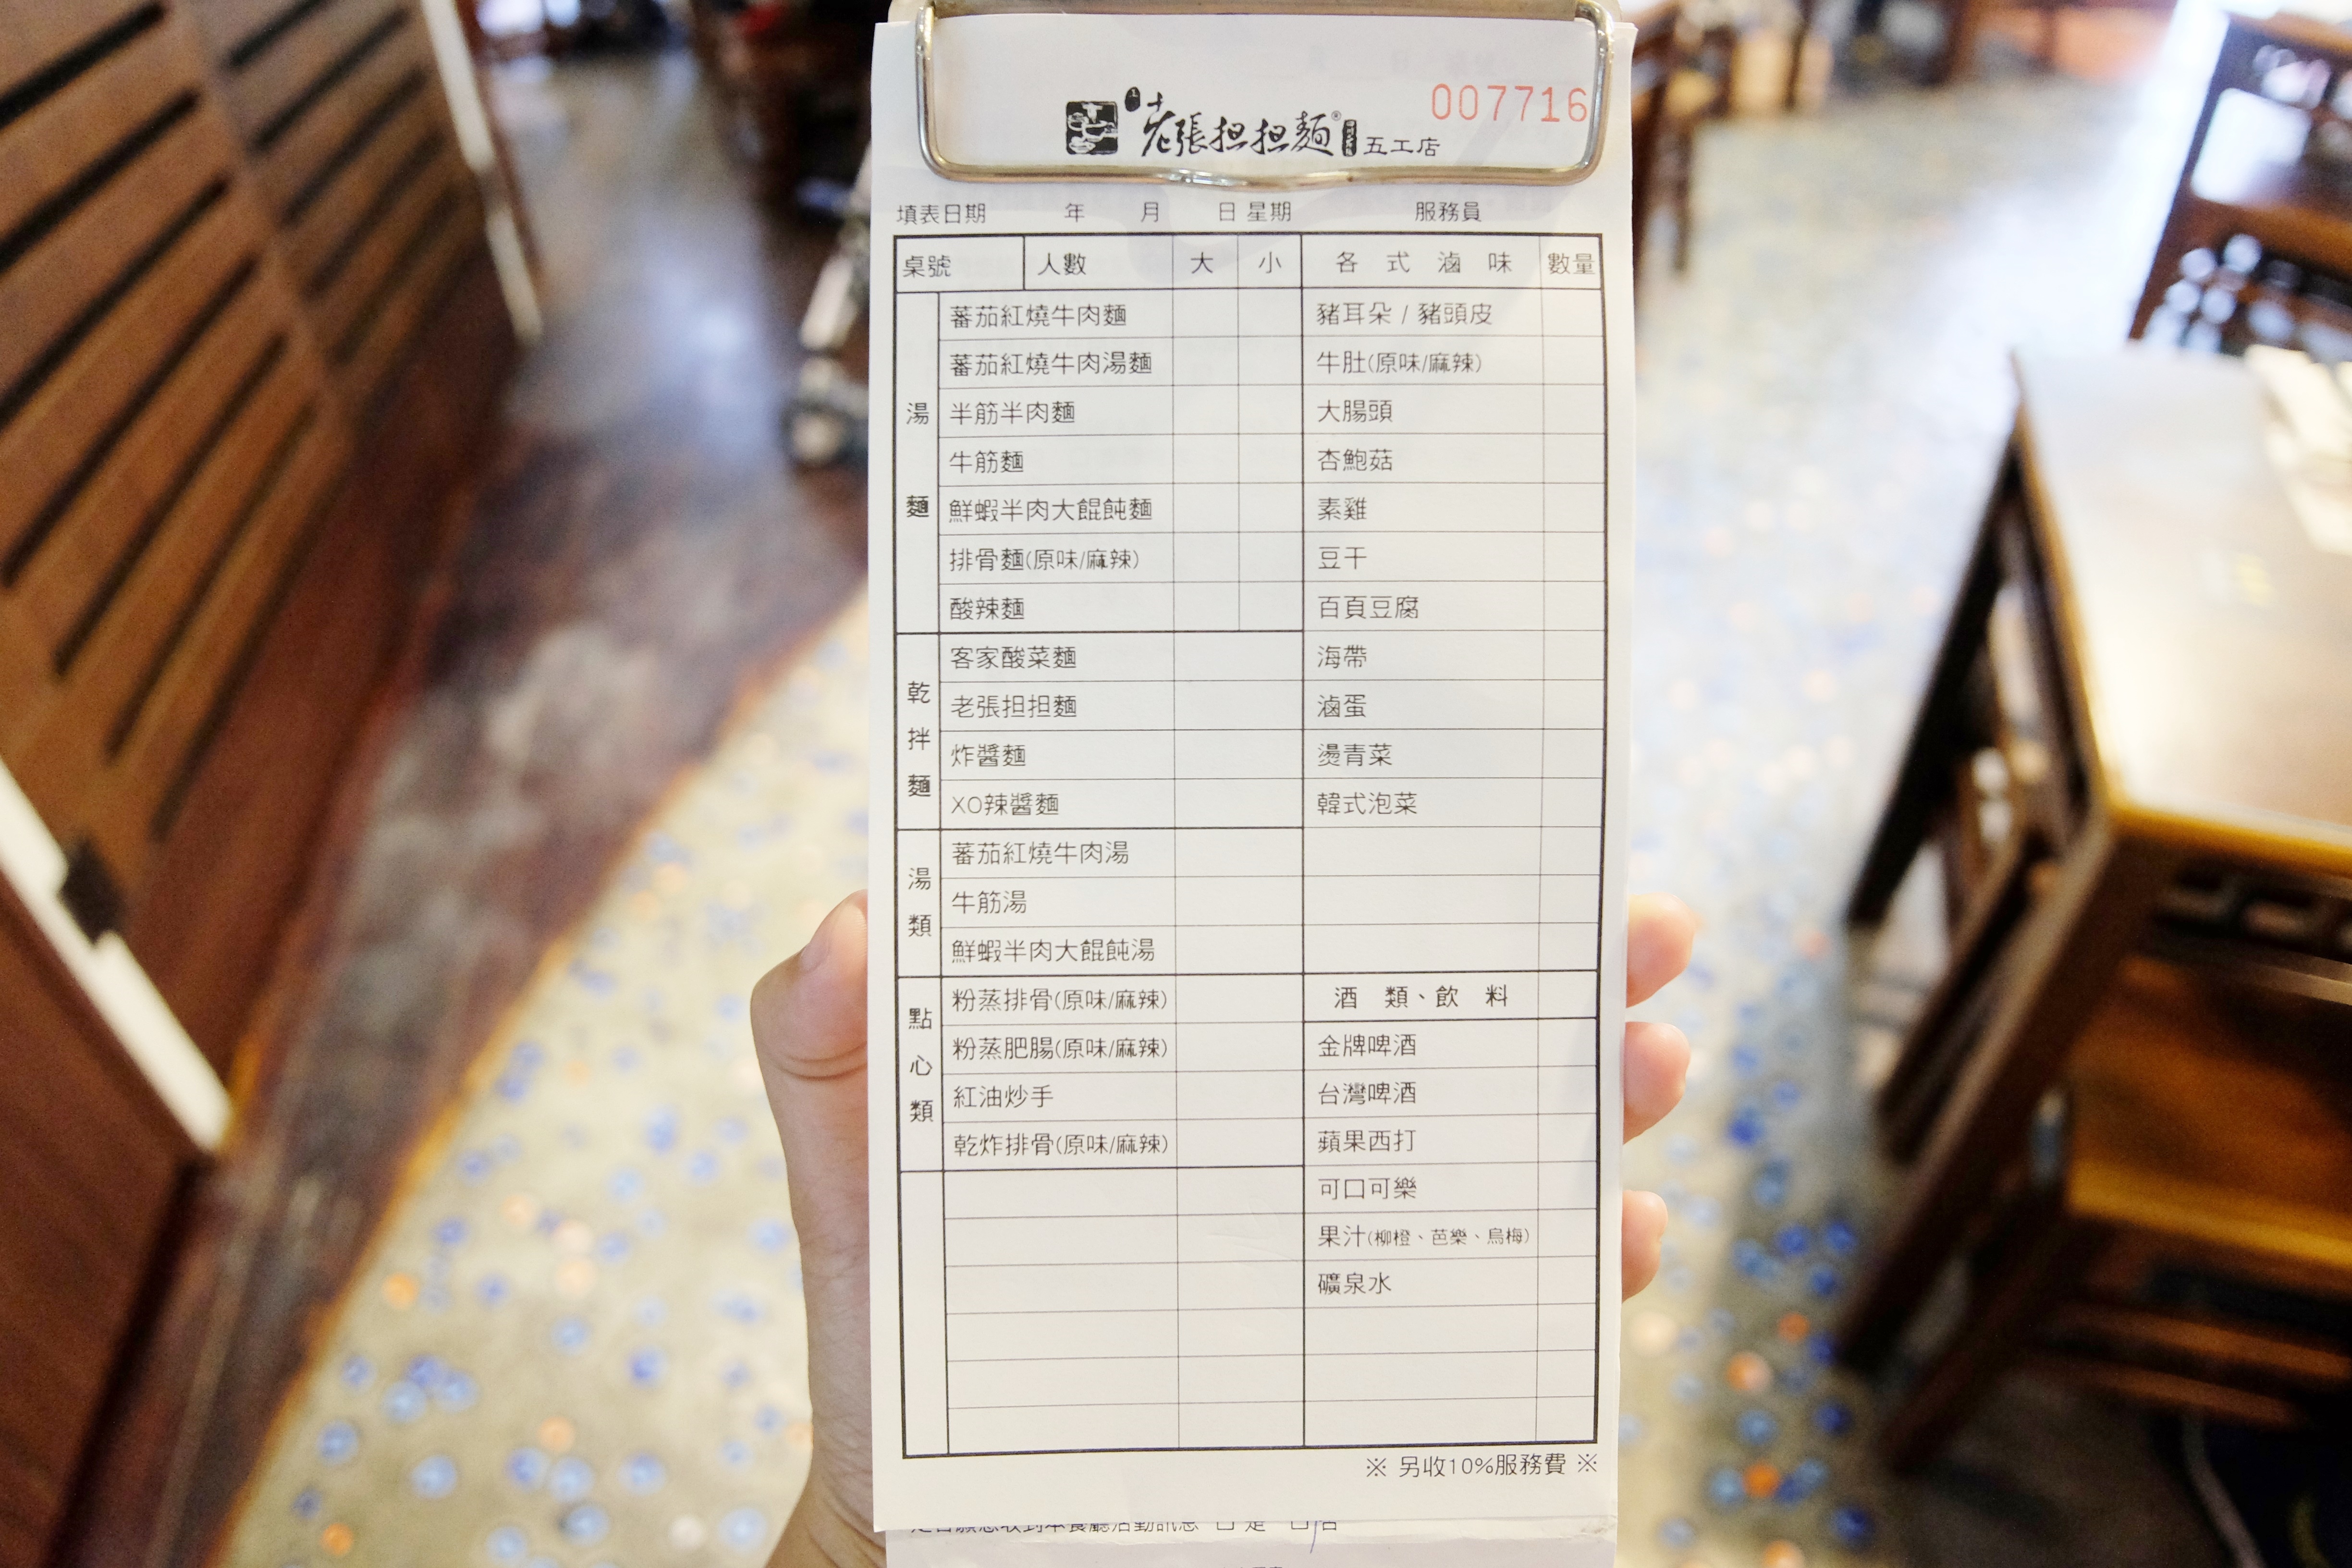 007716
老張担担麵® 五工店
填表日期 年 月 日 星期 服務員
桌號 人數 大 小 各式滷味 數量
湯麵
蕃茄紅燒牛肉麵 豬耳朵 / 豬頭皮
蕃茄紅燒牛肉湯麵 牛肚(原味/麻辣)
半筋半肉麵 大腸頭
牛筋麵 杏鮑菇
鮮蝦半肉大餛飩麵 素雞
排骨麵(原味/麻辣) 豆干
酸辣麵 百頁豆腐
乾拌麵
客家酸菜麵 海帶
老張担担麵 滷蛋
炸醬麵 燙青菜
XO辣醬麵 韓式泡菜
湯類
蕃茄紅燒牛肉湯
牛筋湯
鮮蝦半肉大餛飩湯
點心類
粉蒸排骨(原味/麻辣) 酒類、飲料
粉蒸肥腸(原味/麻辣) 金牌啤酒
紅油炒手 台灣啤酒
乾炸排骨(原味/麻辣) 蘋果西打
可口可樂
果汁(柳橙、芭樂、烏梅)
礦泉水
※ 另收10%服務費 ※
是否願意收到本餐廳活動訊息 □是 □否